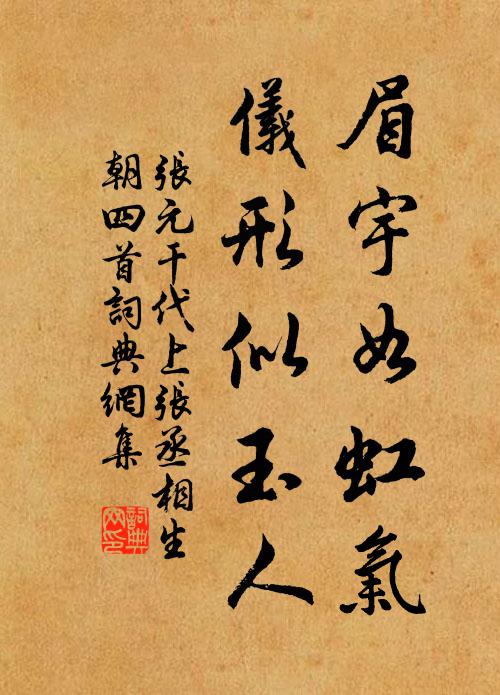 眉宇如虹氣
儀形似玉人
張元干代上張丞相生
朝四首詞典網集
詞典网印